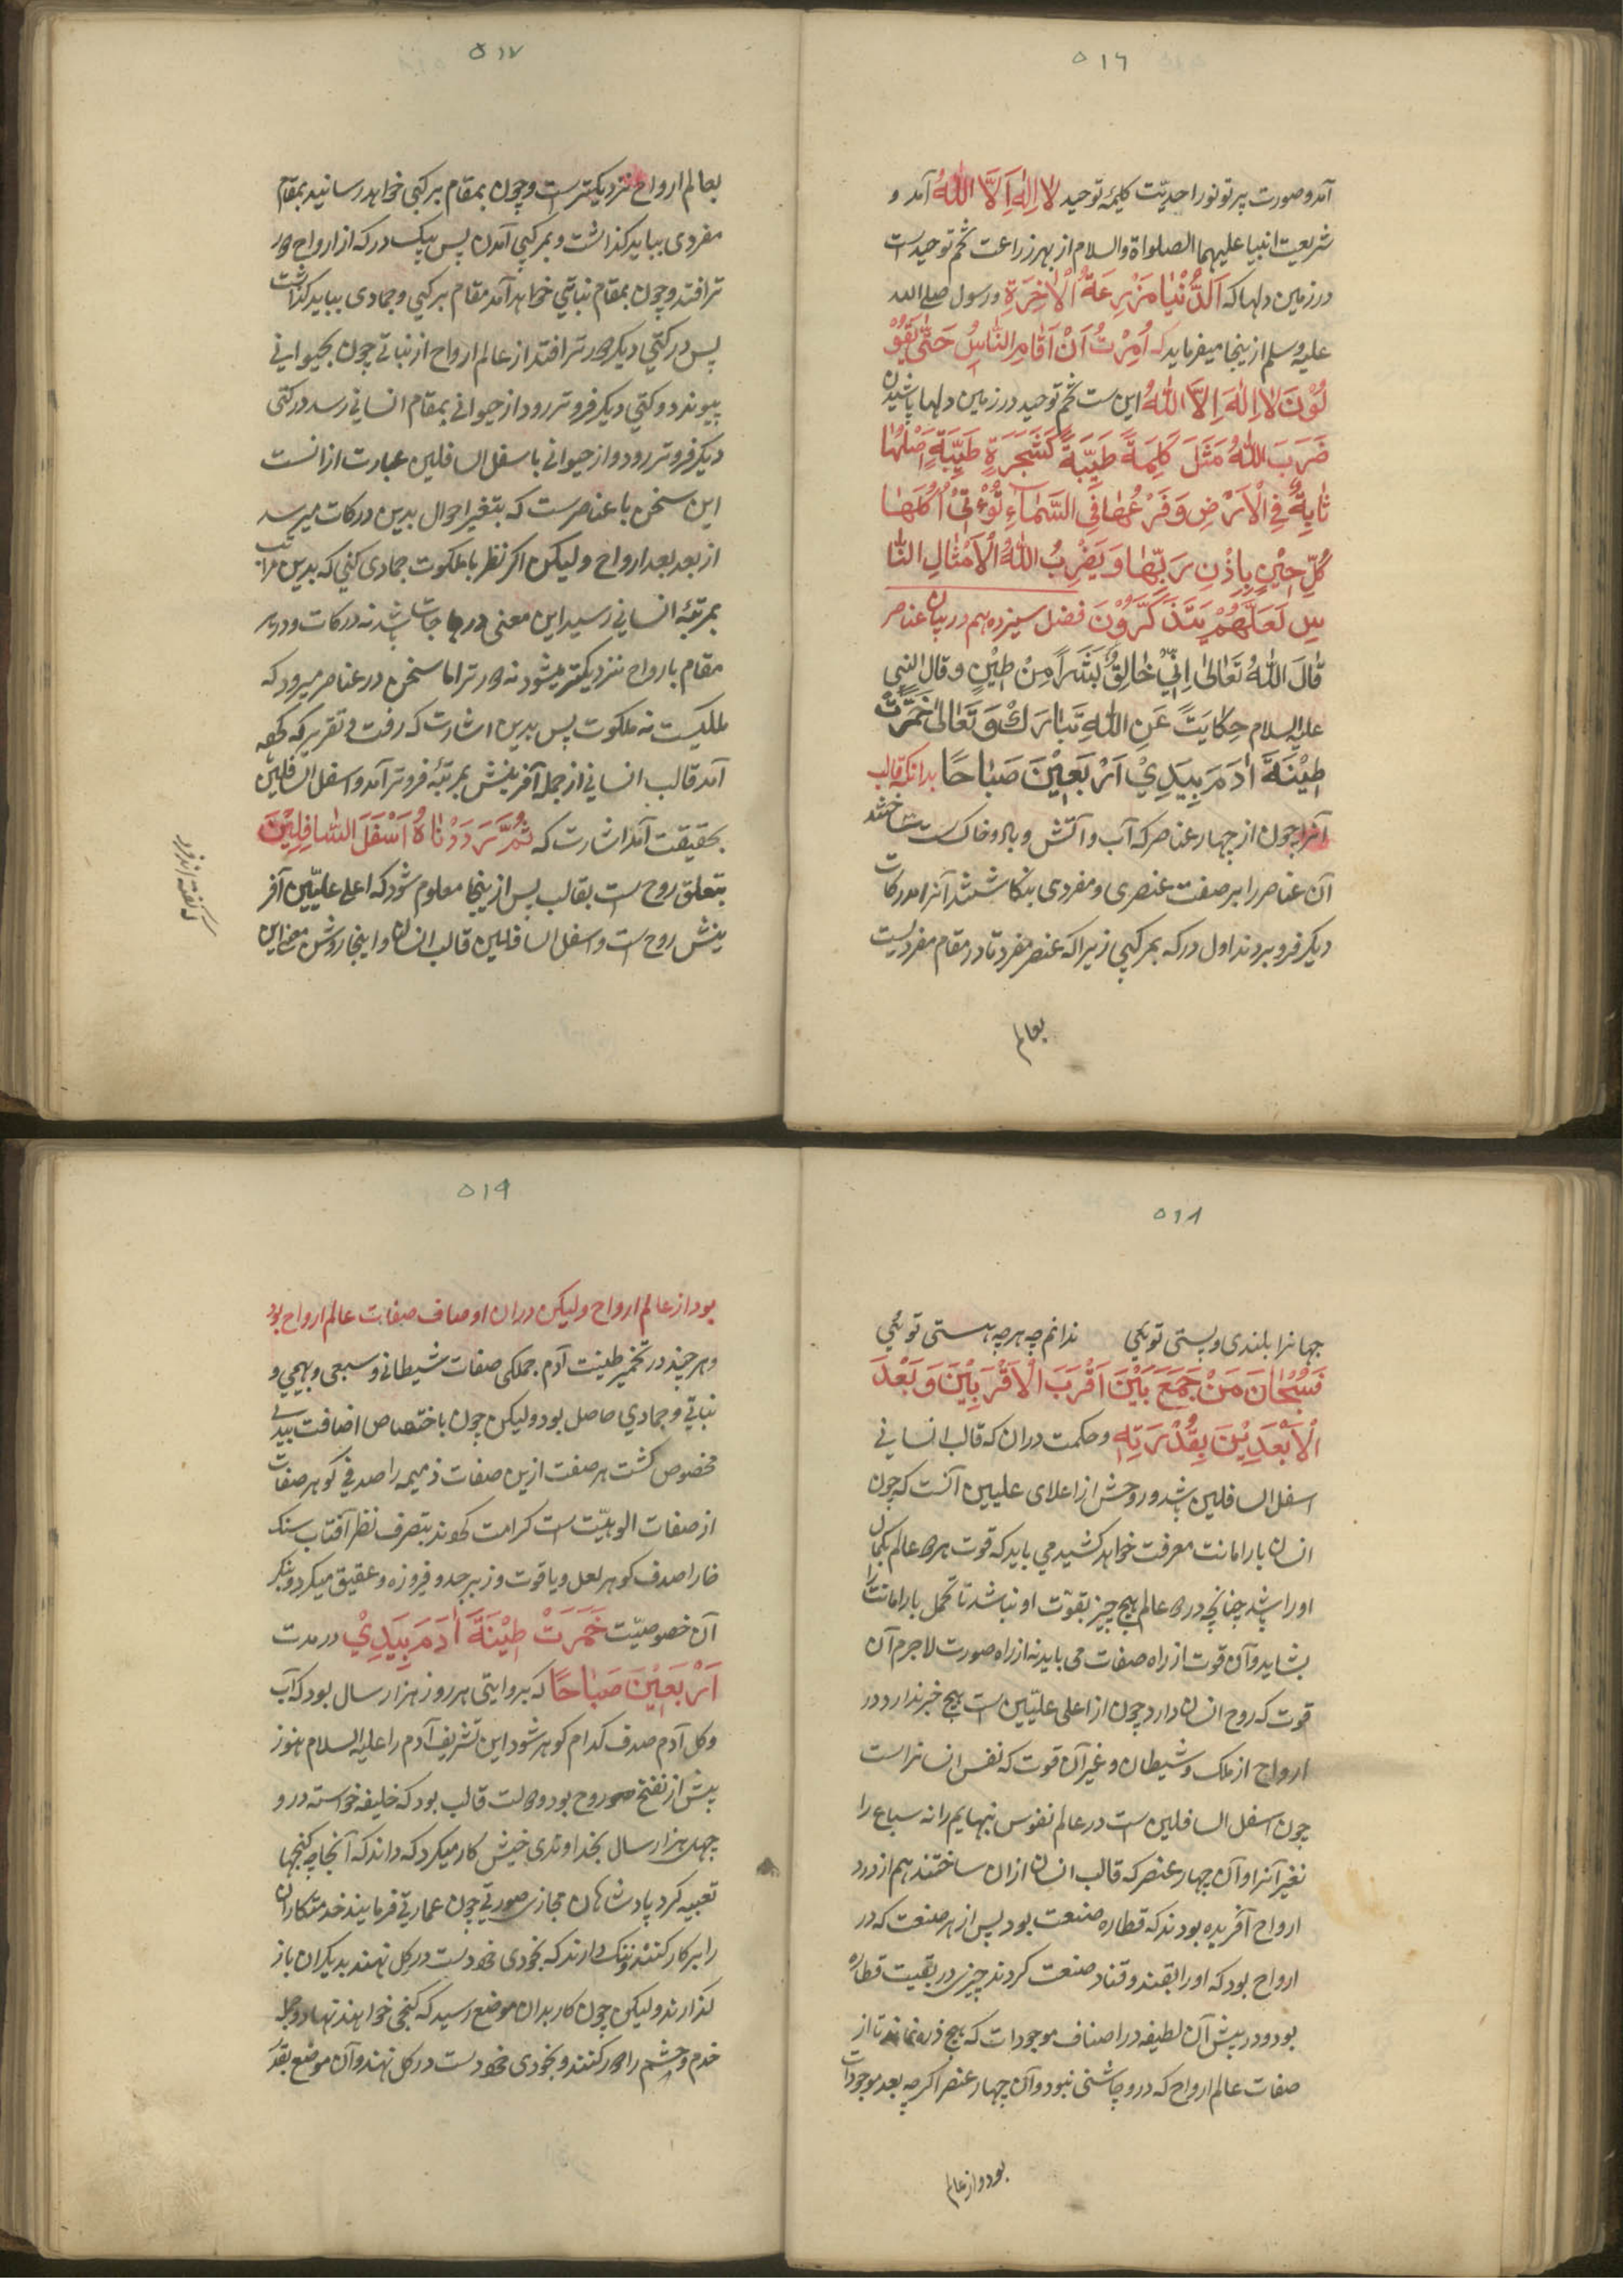 ٥١٦
آمد و صورت پرتو نور احدیّت کلیمهٔ توحید لا اِلٰهَ اِلَّا اللهُ آمد و
شریعت انبیا علیهما الصلواة والسلام از بهر زراعت تخم توحیدست
در زمین دلها که اَلدُّنْیٰا مَزْرِعَةُ الْاٰخِرَةِ و رسول صلے الله
علیه وسلم از ینجا میفرماید که اُمِرْتُ اَنْ اُقٰاتِلَ النّٰاسَ حَتّٰی یَقُوْ
لُوْنَ لا اِلٰهَ اِلَّا اللهُ این ست تخم توحید در زمین دلها پاشیدن
ضَرَبَ اللهُ مَثَلَ کَلِمَةً طَیِّبَةً کَشَجَرَةٍ طَیِّبَةٍ اَصْلُهٰا
ثٰابِتَةٌ فِي الْاَرْضِ وَفَرْعُهٰا فِي السَّمٰاءِ تُؤْتِيْ اُکُلَهٰا
کُلَّ حِیْنٍ بِاِذْنِ رَبِّهٰا وَیَضْرِبُ اللهُ الْاَمْثٰالِ النّٰا
سِ لَعَلَّهُمْ یَتَذَکَّرُوْنَ فصل سیزدهم در بیان عناصر
قٰالَ اللهُ تَعٰالیٰ اِنِّيْ خٰالِقٌ بَشَراً مِنْ طِیْنٍ و قال النبی
علیه السلام حِکٰایَتً عَنِ اللهِ تَبٰارَكْ وَ تَعٰالیٰ خَمَّرْتُ
طِیْنَةَ اٰدَمَ بِیَدِيْ اَرْبَعِیْنَ صَبٰاحًا بدانکه قالب
آنرا چون از چهار عناصر که آب و آتش و باد و خاک ست ساختند
آن عناصر را بر صفت عنصری و مفردی بنکاشتند آنرا در درکات
دیکر فرو بردند اول درکه بمرکبی زیراکه عنصر مفرد تا در مقام مفردیست
بعالم
٥١٧
بعالم ارواح نزدیکترست و چون بمقام مرکبی خواهد رسانید بمقام
مفردی بباید کذاشت و بمرکبی آمدن پس بیک درکه از ارواح دور
تر افتد و چون بمقام نباتی خواهد آمد مقام مرکبی و جمادی بباید کذاشت
پس درکتی دیکر دورتر افتد از عالم ارواح از نباتی چون بحیوانی
پیوندد و کتی دیکر فروتر رود از حیوانی بمقام انسانی رسد درکتی
دیکر فروتر رود و از حیوانی باسفل السافلین عبارت ازانست
این سخن با عناصرست که بتغیر احوال بدین درکات میرسد
از بعد بعد ارواح و لیکن اکر نظر با ملکوت جمادی کنی که بدین مراتب
بمرتبهٔ انسانی رسید این معنی درجات باشد نه درکات و در هر
مقام بارواح نزدیکتر میشود نه دورتر اما سخن در عناصر میرود که
ملکیست نه ملکوت پس بدین اشارت که رفت و تقریر که کفته
آمد قالب انسانی از جمله آفرینش بمرتبهٔ فروتر آمد و اسفل السافلین
بحقیقت آمد اشارت که ثُمَّ رَدَدْنٰاهُ اَسْفَلَ السّٰافِلِیْنَ
بتعلق روح ست بقالب پس از ینجا معلوم شود که اعلی علیّین آفر
ینش روح ست و اسفل السافلین قالب انسان و اینجا روشن
٥١٨
جهانرا بلندی و پستی توئی ندانم چه هرچه هستی توئی
فَسُبْحٰانَ مَنْ جَمَعَ بَیْنَ اَقْرَبَ الْاَقْرَبِیْنَ وَ بَعْدَ
الْاَبْعَدِیْنَ بِقُدْرَتِهِ و حکمت دران که قالب انسانی
اسفل السافلین باشد و روحش از اعلای علیین آنست که چون
انسان بار امانت معرفت خواهد کشید می باید که قوت هر دو عالم بکمال
او را باشد چنانچه در دو عالم هیچ چیز بقوّت او نباشد تا تحمل بار امانت را
بشاید و آن قوت از راه صفات می باید نه از راه صورت لاجرم آن
قوت که روح انسان دارد چون از اعلی علیّین ست هیچ خبر ندارد در
ارواح از ملک و شیطان و غیر آن قوت که نفس انسانراست
چون اسفل السافلین ست در عالم نفوس نبهایم را نه سباع را
نغیر آنرا و آن چهار عنصر که قالب انسان ازان ساختند هم از درد
ارواح آفریده بودند که قطاره صنعت بود پس از هر صنعت که در
ارواح بود که او را بقند و قناد صنعت کردند چیزی در بقیت قطاره
بود و در پیش آن لطیفه در اصناف موجودات که هیچ ذره نماند تا از
صفات عالم ارواح که درو چاشنی نبود و آن چهار عنصر اکرچه بعد موجودات
بود و از عالم
٥١٩
بود از عالم ارواح و لیکن دران اوصاف صفات عالم ارواح بود
و هر چند در تخمیر طینت آدم جملکی صفات شیطانی و سبعی و بهیمی و
نباتی و جمادی حاصل بود و لیکن چون باختصاص اضافت بیدی
مخصوص کشت هر صفت ازین صفات ذمیمه را صدفی کوهر صفات
از صفات الوهیّت ست کرامت کهوند بتصرف نظر آفتاب سنک
خارا صدف کوهر لعل و یاقوت و زبرجد و فیروزه و عقیق میکردد بنکر
آن خصوصیّت خَمَرَتْ طِیْنَةَ اٰدَمَ بِیَدِيْ در مدت
اَرْبَعِیْنَ صَبٰاحًا که بروایتی هر روز هزار سال بود که آب
و کل آدم صدف کدام کوهر شود این تشریف آدم را علیه السلام هنوز
پیش از نفخ روح بود و دولت قالب بود که خلیفه خواسته درو
چهل هزار سال بخداوندی خویش کار میکرد که داند که آنجا چه کنجها
تعبیه کرد پادشاهان مجازی صورتی چون عمارتی فرمایند خدمتکاران
را بر کار کنند و ننک دارند که بخودی خود دست در کل نهند بدیکران باز
کذارند و لیکن چون کار بدان موضع رسید که کنجی خواهند نهاد و جمله
خدم و حشم را دور کنند و بخودی خود دست در کل نهند و آن موضع بقدر